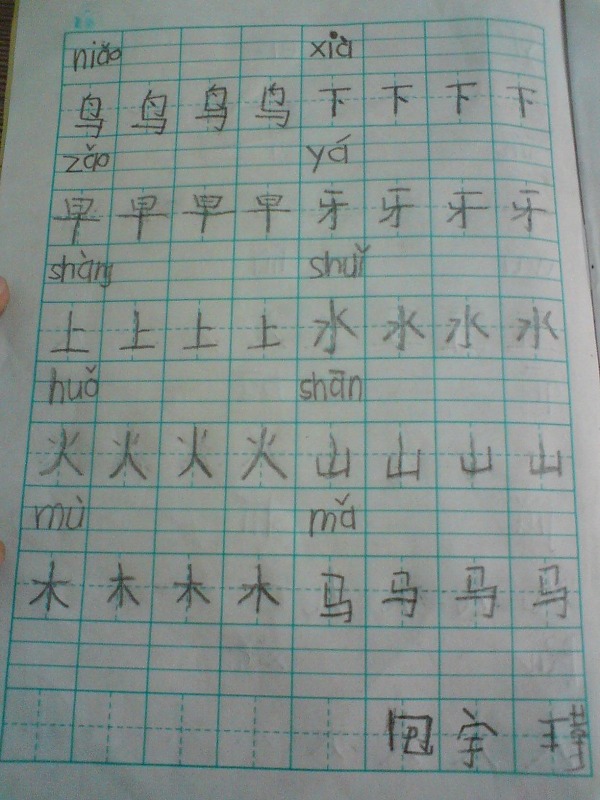 niǎo xià
鸟 鸟 鸟 鸟 下 下 下 下
zǎo yá
早 早 早 早 牙 牙 牙 牙
shàng shuǐ
上 上 上 上 水 水 水 水
huǒ shān
火 火 火 火 山 山 山 山
mù mǎ
木 木 木 木 马 马 马 马
字